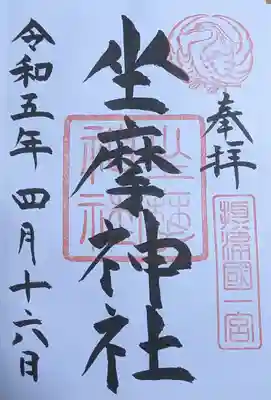 奉拝
攝津國一宮
坐摩神社
令和五年四月十六日